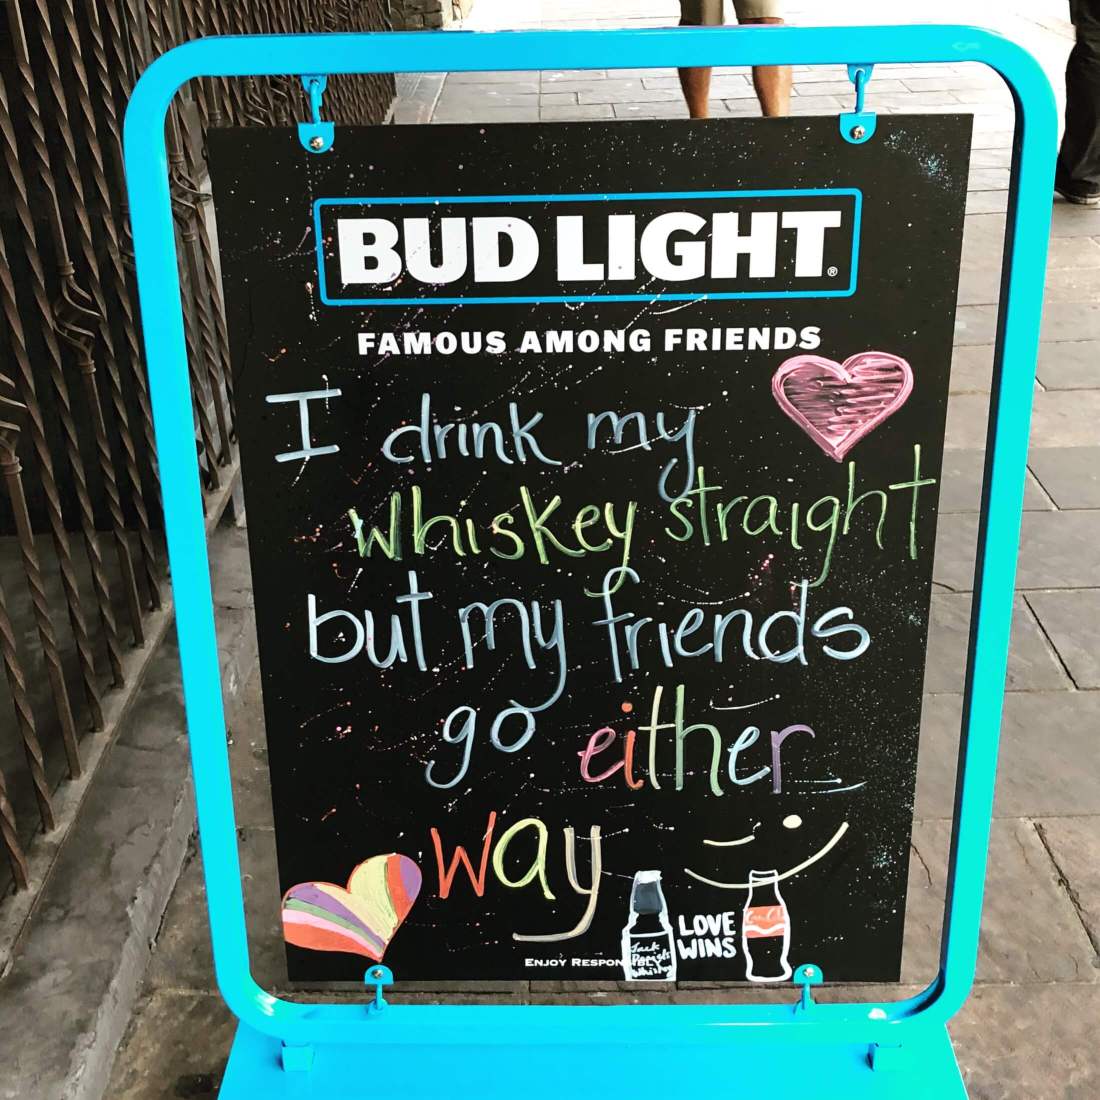 BUD LIGHT®
FAMOUS AMONG FRIENDS
I drink my
whiskey straight
but my friends
go either
way
LOVE
WINS
Jack
Daniels
Whiskey
ENJOY RESPONSIBLY